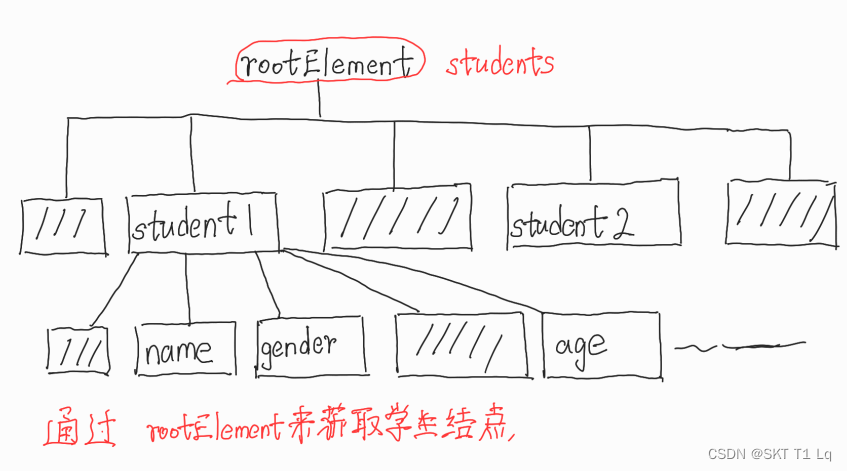 rootElement students
student1 student2
name gender age
通过 rootElement来获取学生结点,
CSDN @SKT T1 Lq